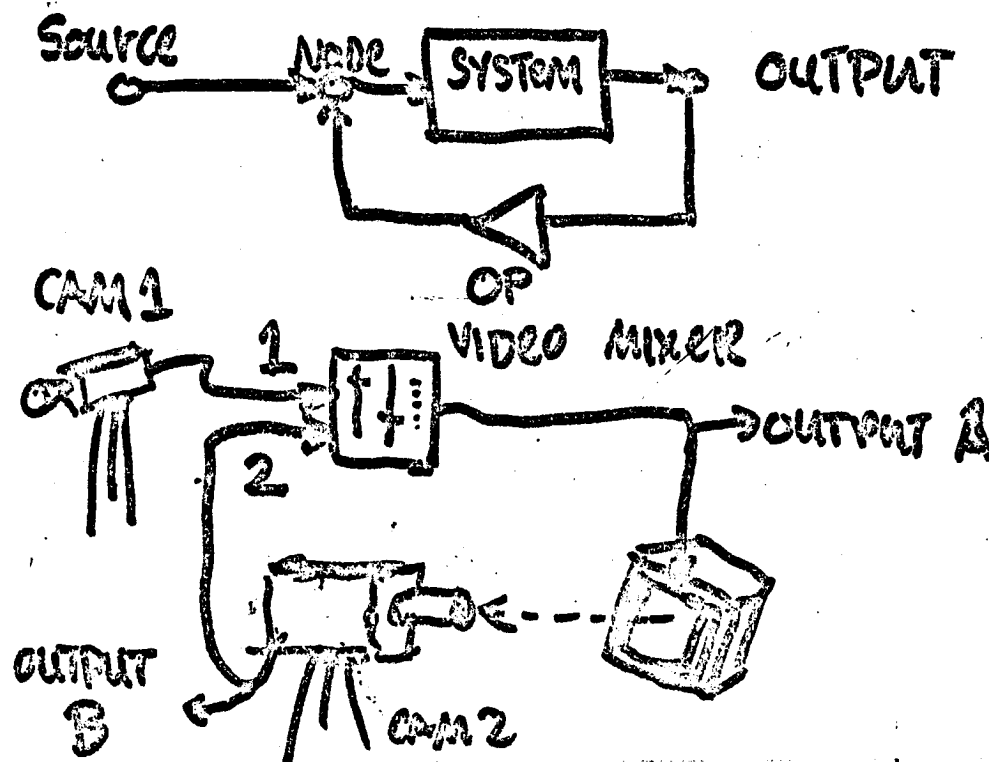 Source
NODE
SYSTEM
OUTPUT
OP
CAM 1
1
VIDEO MIXER
OUTPUT A
2
OUTPUT
B
CAM 2